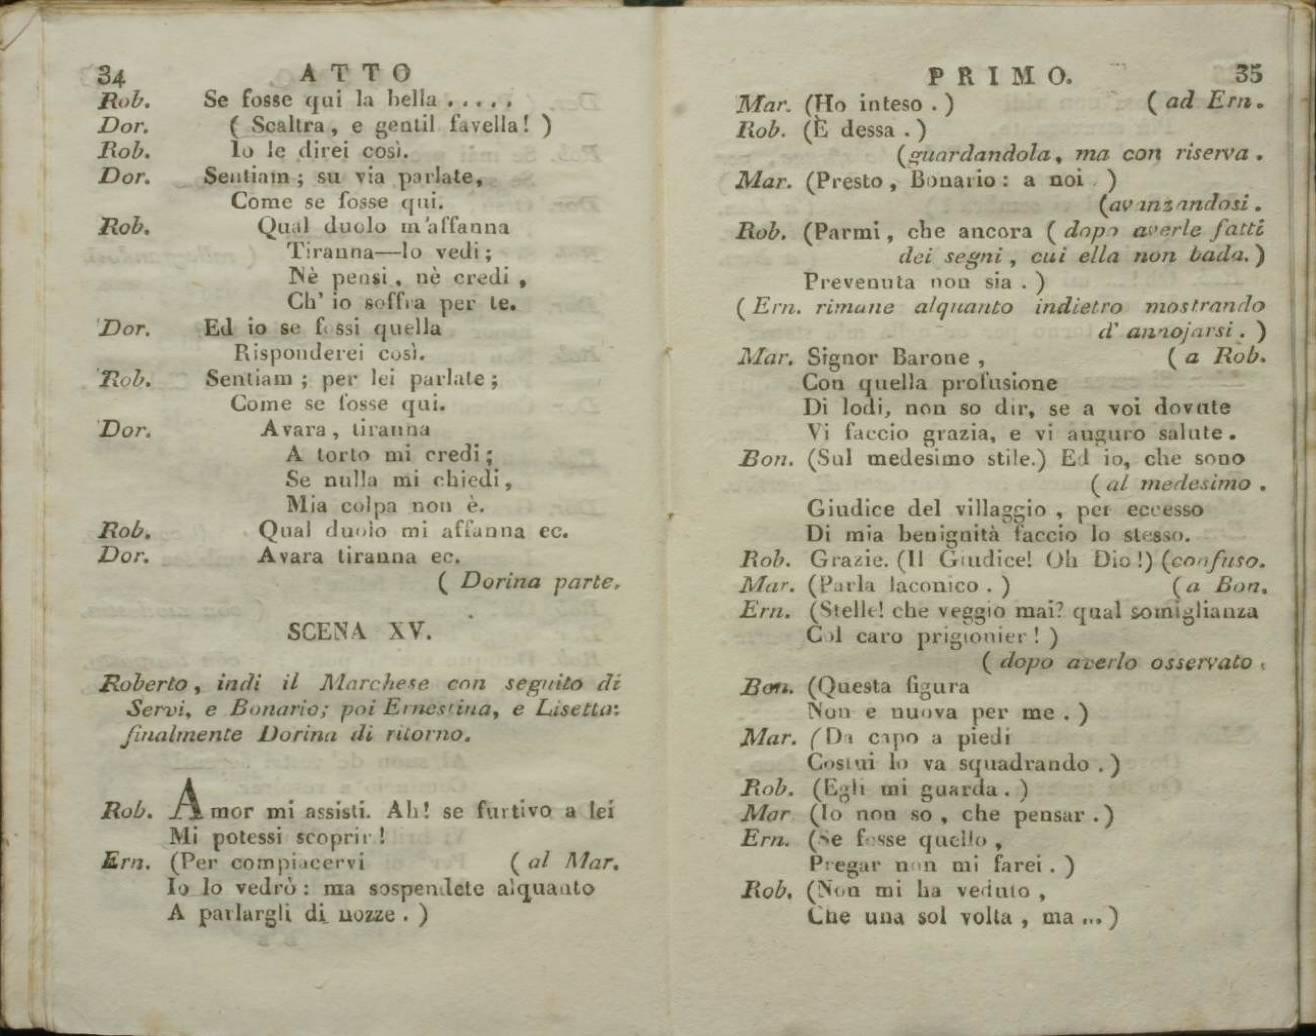 34 ATTO
Rob. Se fosse qui la bella . . . . .
Dor. ( Scaltra, e gentil favella! )
Rob. Io le direi così.
Dor. Sentiam ; su via parlate,
Come se fosse qui.
Rob. Qual duolo m'affanna
Tiranna—lo vedi ;
Nè pensi, nè credi ,
Ch' io soffra per te.
Dor. Ed io se fossi quella
Risponderei così.
Rob. Sentiam ; per lei parlate ;
Come se fosse qui.
Dor. Avara, tiranna
A torto mi credi ;
Se nulla mi chiedi,
Mia colpa non è.
Rob. Qual duolo mi affanna ec.
Dor. Avara tiranna ec.
( Dorina parte.
SCENA XV.
Roberto, indi il Marchese con seguito di
Servi, e Bonario; poi Ernestina, e Lisetta:
finalmente Dorina di ritorno.
Rob. Amor mi assisti. Ah! se furtivo a lei
Mi potessi scoprir !
Ern. (Per compiacervi ( al Mar.
Io lo vedrò : ma sospendete alquanto
A parlargli di nozze . )
PRIMO. 35
Mar. (Ho inteso . ) ( ad Ern.
Rob. (È dessa . )
(guardandola, ma con riserva .
Mar. (Presto , Bonario : a noi . )
(avanzandosi .
Rob. (Parmi, che ancora ( dopo averle fatti
dei segni , cui ella non bada. )
Prevenuta non sia . )
( Ern. rimane alquanto indietro mostrando
d' annojarsi . )
Mar. Signor Barone , ( a Rob.
Con quella profusione
Di lodi, non so dir, se a voi dovute
Vi faccio grazia, e vi auguro salute .
Bon. (Sul medesimo stile.) Ed io, che sono
( al medesimo .
Giudice del villaggio , per eccesso
Di mia benignità faccio lo stesso.
Rob. Grazie. (Il Giudice! Oh Dio!) (confuso.
Mar. (Parla laconico . ) ( a Bon.
Ern. (Stelle! che veggio mai? qual somiglianza
Col caro prigionier ! )
( dopo averlo osservato .
Bon. (Questa figura
Non e nuova per me . )
Mar. (Da capo a piedi
Costui lo va squadrando . )
Rob. (Egli mi guarda . )
Mar (Io non so , che pensar . )
Ern. (Se fosse quello ,
Pregar non mi farei . )
Rob. (Non mi ha veduto ,
Che una sol volta , ma ... )